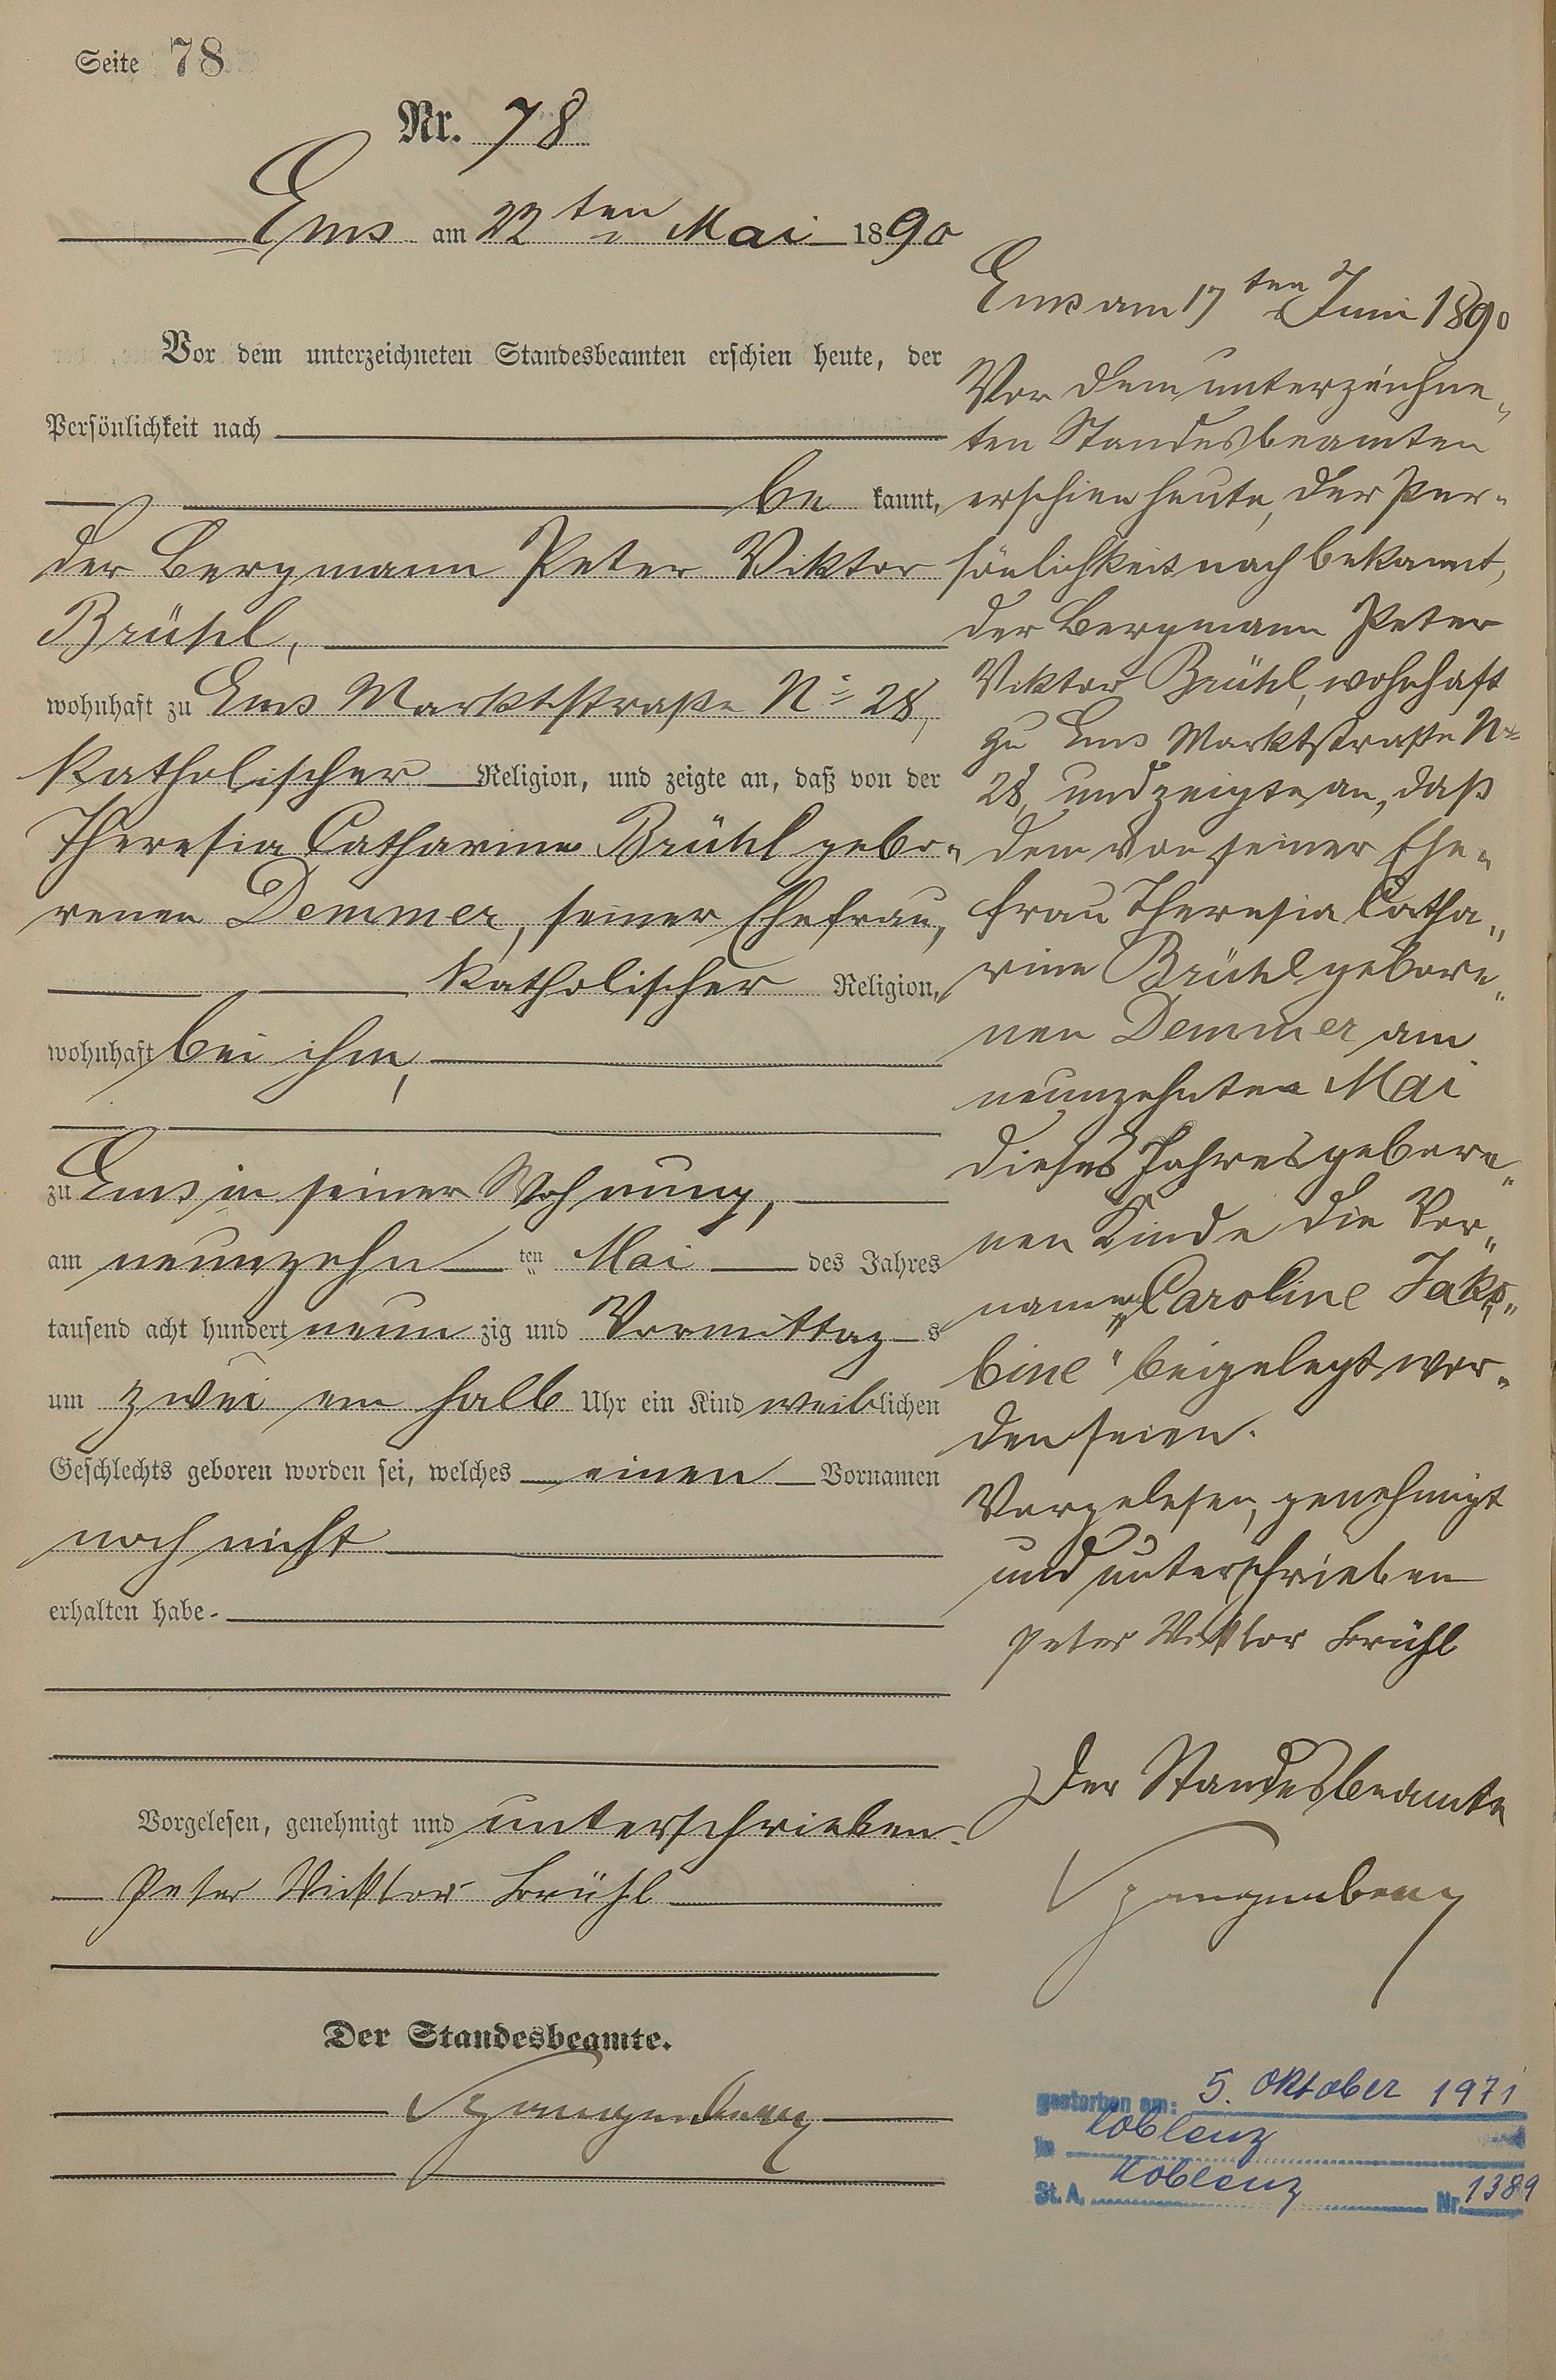 Seite 78
Nr. 78
Ems am 22ten Mai 1890
Vor dem unterzeichneten Standesbeamten erschien heute, der
Persönlichkeit nach
be kannt,
der Bergmann Peter Viktor
Brühl,
wohnhaft zu Ems Marktstraße No 28,
katholischer Religion, und zeigte an, daß von der
Theresia Catharine Brühl gebo-
renen Demmer, seiner Ehefrau,
katholischer Religion,
wohnhaft bei ihm,
zu Ems in seiner Wohnung,
am neunzehn ten Mai des Jahres
tausend acht hundert neun zig und Vormittag s
um zwei ein halb Uhr ein Kind weiblichen
Geschlechts geboren worden sei, welches einen Vornamen
noch nicht
erhalten habe.
Vorgelesen, genehmigt und unterschrieben.
Peter Vicktor Brühl
Der Standesbeamte.
Spangenberg
Ems am 17ten Juni 1890
Vor dem unterzeichne-
ten Standesbeamten
erschien heute, der Per-
sönlichkeit nach bekannt,
der Bergmann Peter
Viktor Brühl, wohnhaft
zu Ems Marktstraße No
28, und zeigte an, daß
dem von seiner Ehe-
frau Theresia Catha-
rine Brühl gebore-
nen Demmer am
neunzehnten Mai
dieses Jahres gebore-
nen Kinde die Vor-
namen „Caroline Jako-
bine" beigelegt wor-
den seien.
Vorgelesen, genehmigt
und unterschrieben
Peter Viktor Brühl
Der Standesbeamte
Spangenberg
gestorben am: 5. Oktober 1971
in Koblenz
St. A. Koblenz Nr. 1389